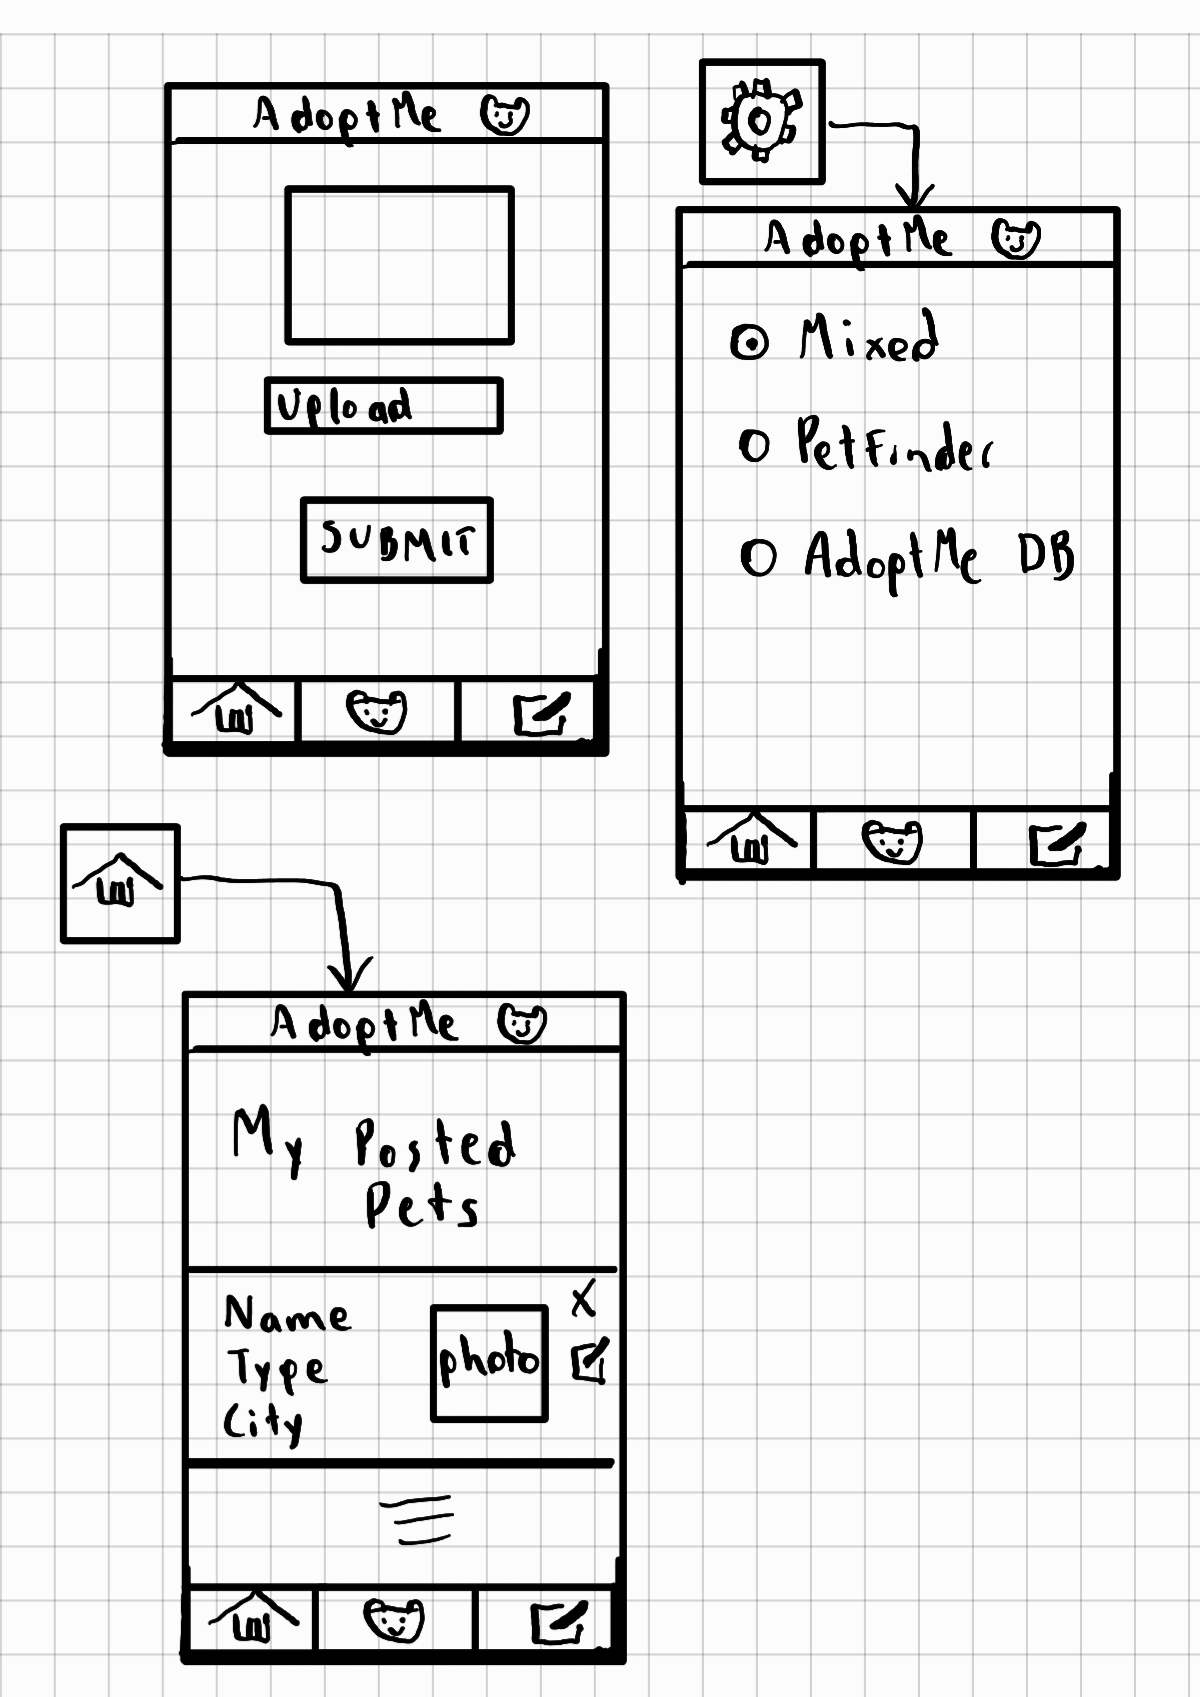 AdoptMe
Upload
SUBMIT
AdoptMe
Mixed
PetFinder
AdoptMe DB
AdoptMe
My Posted
Pets
Name
Type
City
photo
X